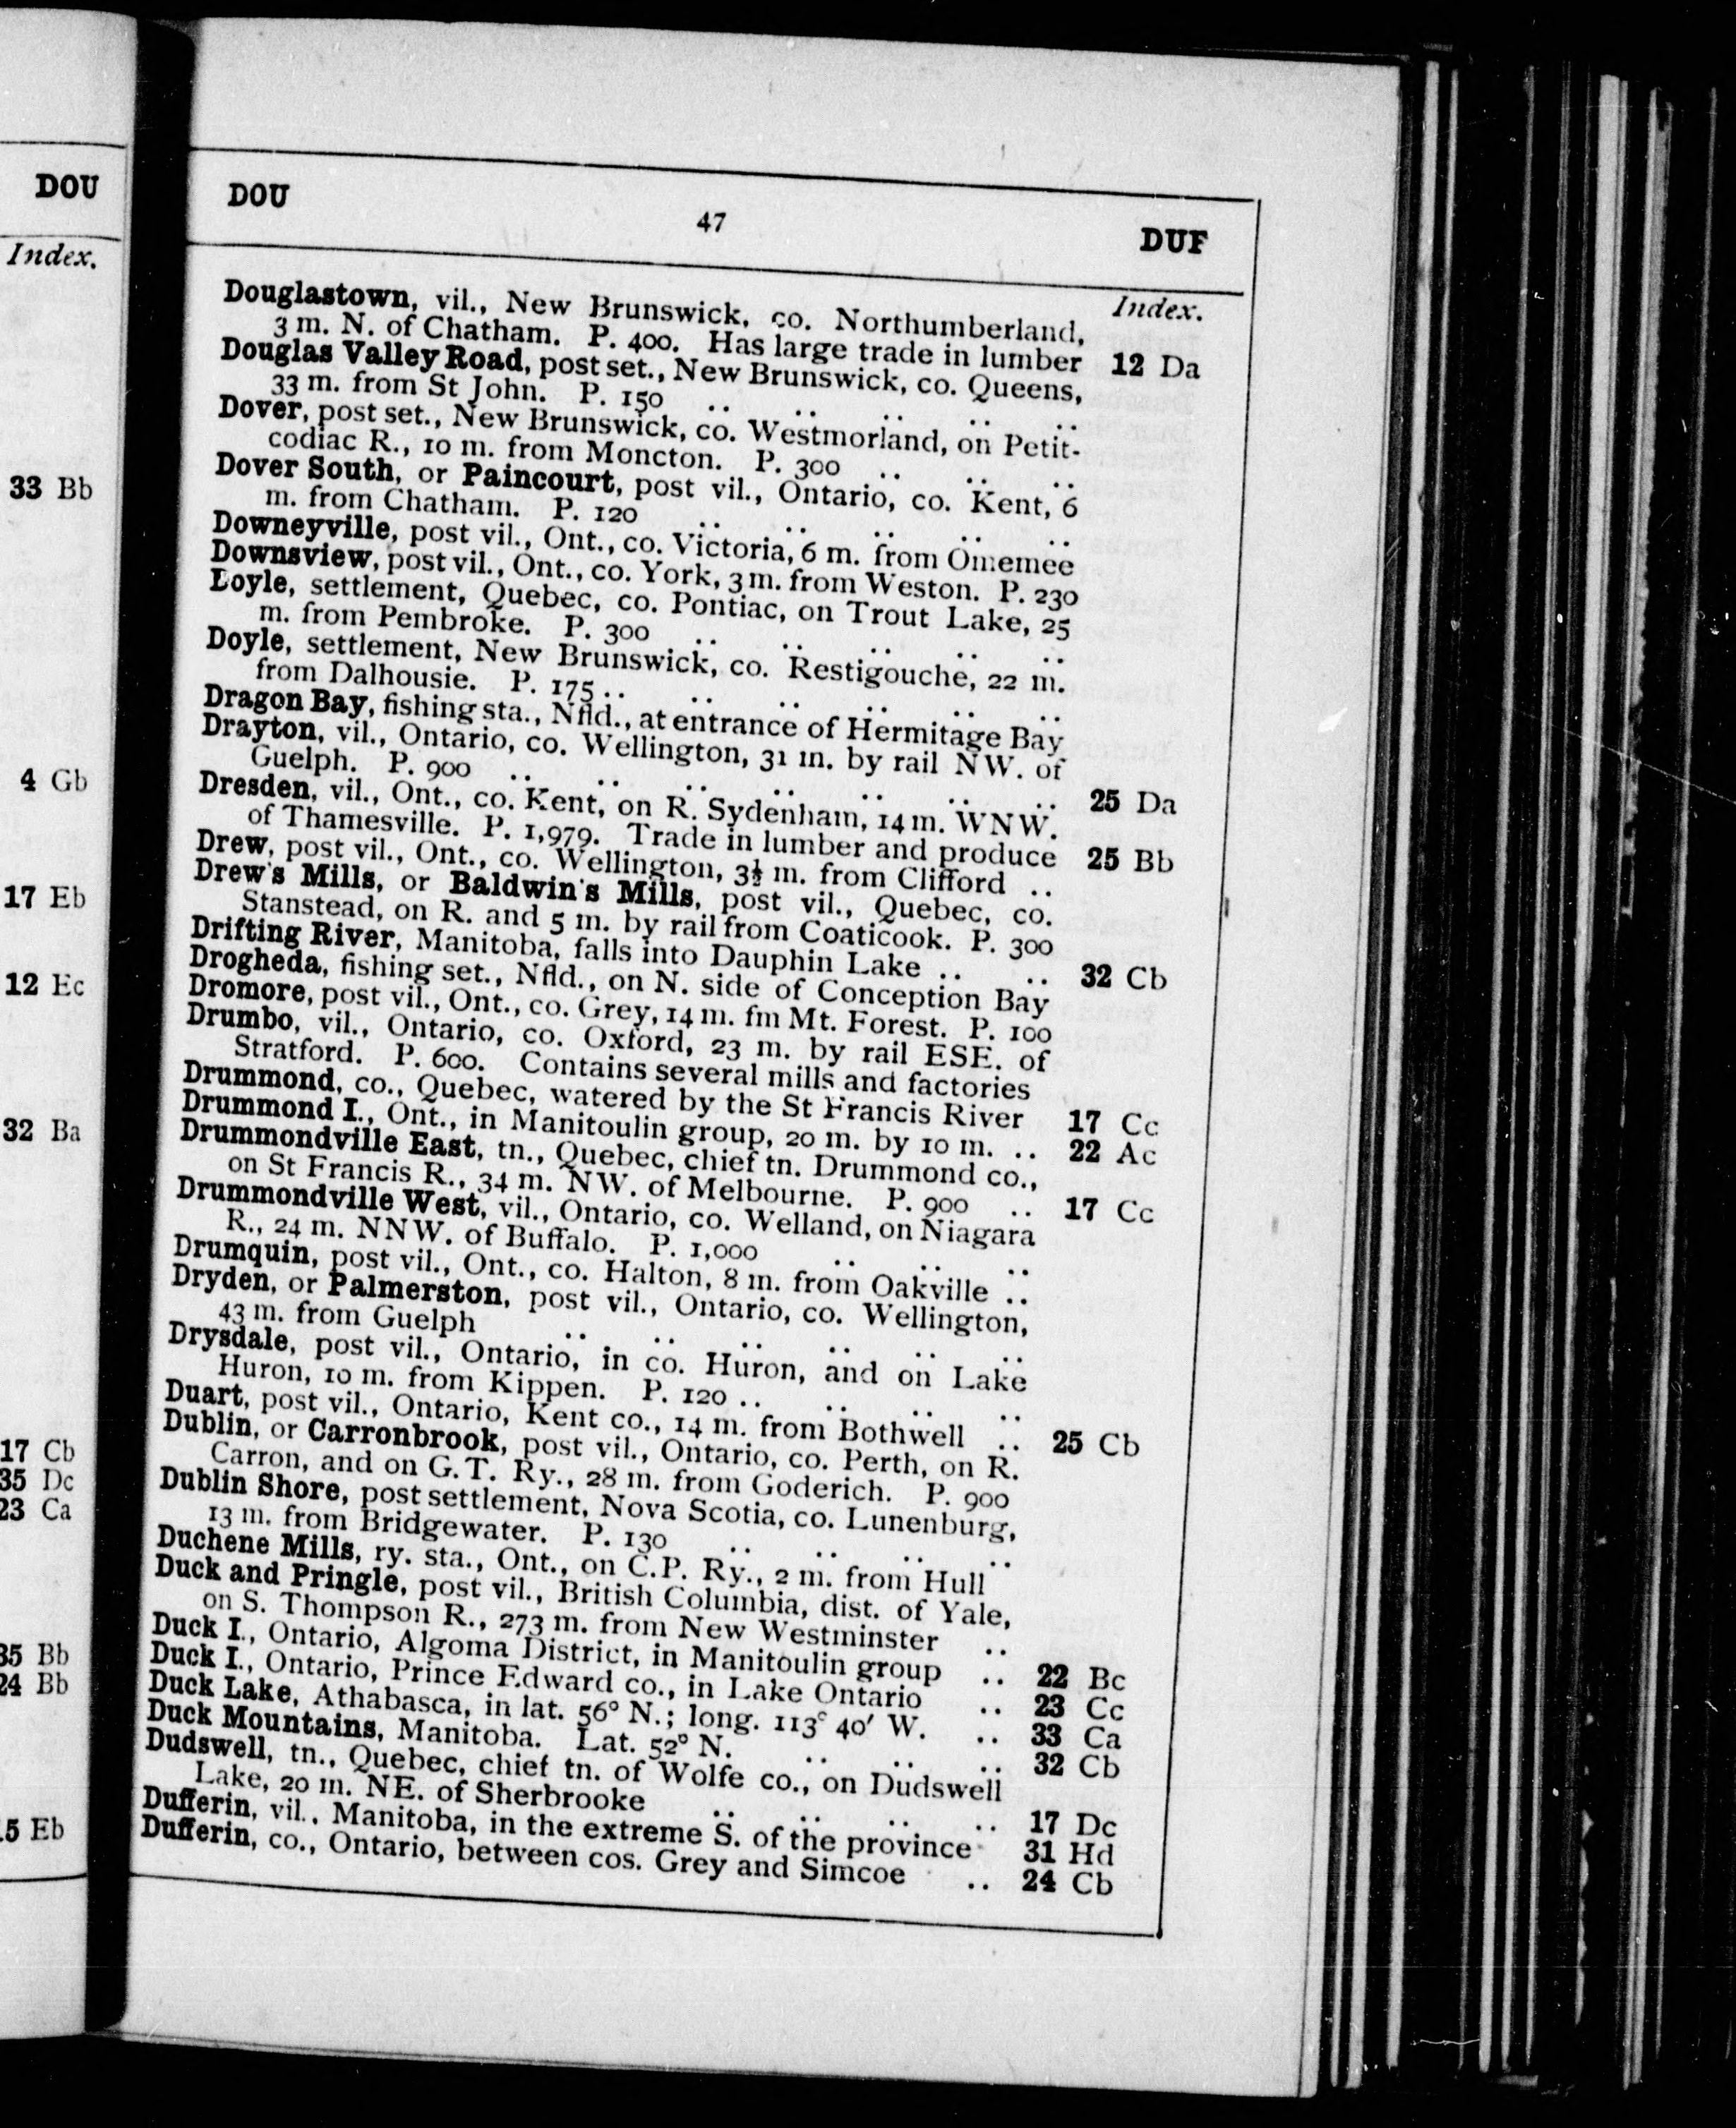 DOU
Index.
33 Bb
4 Gb
17 Eb
12 Ec
32 Ba
17 Cb
35 Dc
23 Ca
35 Bb
24 Bb
5 Eb
DOU 47 DUF
Index.
Douglastown, vil., New Brunswick, co. Northumberland,
3 m. N. of Chatham. P. 400. Has large trade in lumber 12 Da
Douglas Valley Road, post set., New Brunswick, co. Queens,
33 m. from St John. P. 150 .. .. .. .. ..
Dover, post set., New Brunswick, co. Westmorland, on Petit-
codiac R., 10 m. from Moncton. P. 300 .. .. ..
Dover South, or Paincourt, post vil., Ontario, co. Kent, 6
m. from Chatham. P. 120 .. .. .. .. ..
Downeyville, post vil., Ont., co. Victoria, 6 m. from Omemee
Downsview, post vil., Ont., co. York, 3 m. from Weston. P. 230
Doyle, settlement, Quebec, co. Pontiac, on Trout Lake, 25
m. from Pembroke. P. 300 .. .. .. .. ..
Doyle, settlement, New Brunswick, co. Restigouche, 22 m.
from Dalhousie. P. 175 .. .. .. .. .. ..
Dragon Bay, fishing sta., Nfld., at entrance of Hermitage Bay
Drayton, vil., Ontario, co. Wellington, 31 m. by rail NW. of
Guelph. P. 900 .. .. .. .. .. .. .. 25 Da
Dresden, vil., Ont., co. Kent, on R. Sydenham, 14 m. WNW.
of Thamesville. P. 1,979. Trade in lumber and produce 25 Bb
Drew, post vil., Ont., co. Wellington, 3½ m. from Clifford ..
Drew's Mills, or Baldwin's Mills, post vil., Quebec, co.
Stanstead, on R. and 5 m. by rail from Coaticook. P. 300
Drifting River, Manitoba, falls into Dauphin Lake .. .. 32 Cb
Drogheda, fishing set., Nfld., on N. side of Conception Bay
Dromore, post vil., Ont., co. Grey, 14 m. fm Mt. Forest. P. 100
Drumbo, vil., Ontario, co. Oxford, 23 m. by rail ESE. of
Stratford. P. 600. Contains several mills and factories
Drummond, co., Quebec, watered by the St Francis River 17 Cc
Drummond I., Ont., in Manitoulin group, 20 m. by 10 m. .. 22 Ac
Drummondville East, tn., Quebec, chief tn. Drummond co.,
on St Francis R., 34 m. NW. of Melbourne. P. 900 .. 17 Cc
Drummondville West, vil., Ontario, co. Welland, on Niagara
R., 24 m. NNW. of Buffalo. P. 1,000 .. .. ..
Drumquin, post vil., Ont., co. Halton, 8 m. from Oakville ..
Dryden, or Palmerston, post vil., Ontario, co. Wellington,
43 m. from Guelph .. .. .. .. .. ..
Drysdale, post vil., Ontario, in co. Huron, and on Lake
Huron, 10 m. from Kippen. P. 120 .. .. .. ..
Duart, post vil., Ontario, Kent co., 14 m. from Bothwell .. 25 Cb
Dublin, or Carronbrook, post vil., Ontario, co. Perth, on R.
Carron, and on G.T. Ry., 28 m. from Goderich. P. 900
Dublin Shore, post settlement, Nova Scotia, co. Lunenburg,
13 m. from Bridgewater. P. 130 .. .. .. ..
Duchene Mills, ry. sta., Ont., on C.P. Ry., 2 m. from Hull
Duck and Pringle, post vil., British Columbia, dist. of Yale,
on S. Thompson R., 273 m. from New Westminster ..
Duck I., Ontario, Algoma District, in Manitoulin group .. 22 Bc
Duck I., Ontario, Prince Edward co., in Lake Ontario .. 23 Cc
Duck Lake, Athabasca, in lat. 56° N.; long. 113° 40′ W. .. 33 Ca
Duck Mountains, Manitoba. Lat. 52° N. .. .. .. 32 Cb
Dudswell, tn., Quebec, chief tn. of Wolfe co., on Dudswell
Lake, 20 m. NE. of Sherbrooke .. .. .. .. 17 Dc
Dufferin, vil., Manitoba, in the extreme S. of the province 31 Hd
Dufferin, co., Ontario, between cos. Grey and Simcoe .. 24 Cb